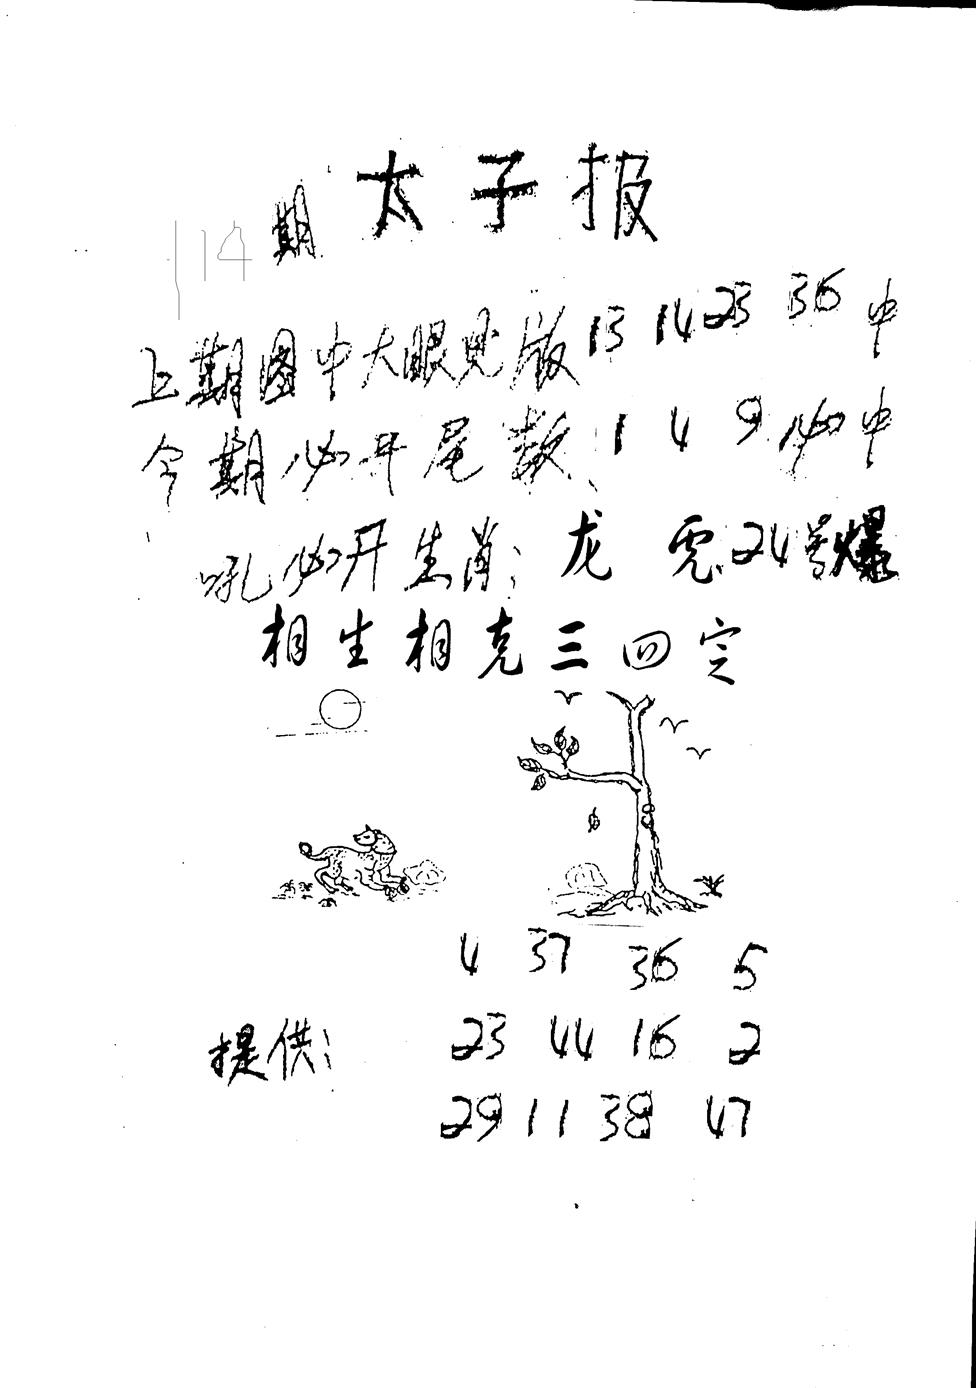 114期 太子报
上期图中大眼见版 13 14 23 36 中
今期必开尾数: 1 4 9 必中
吼必开生肖: 龙 虎 24号爆
相生相克三四定
4 37 36 5
提供: 23 44 16 2
29 11 38 47